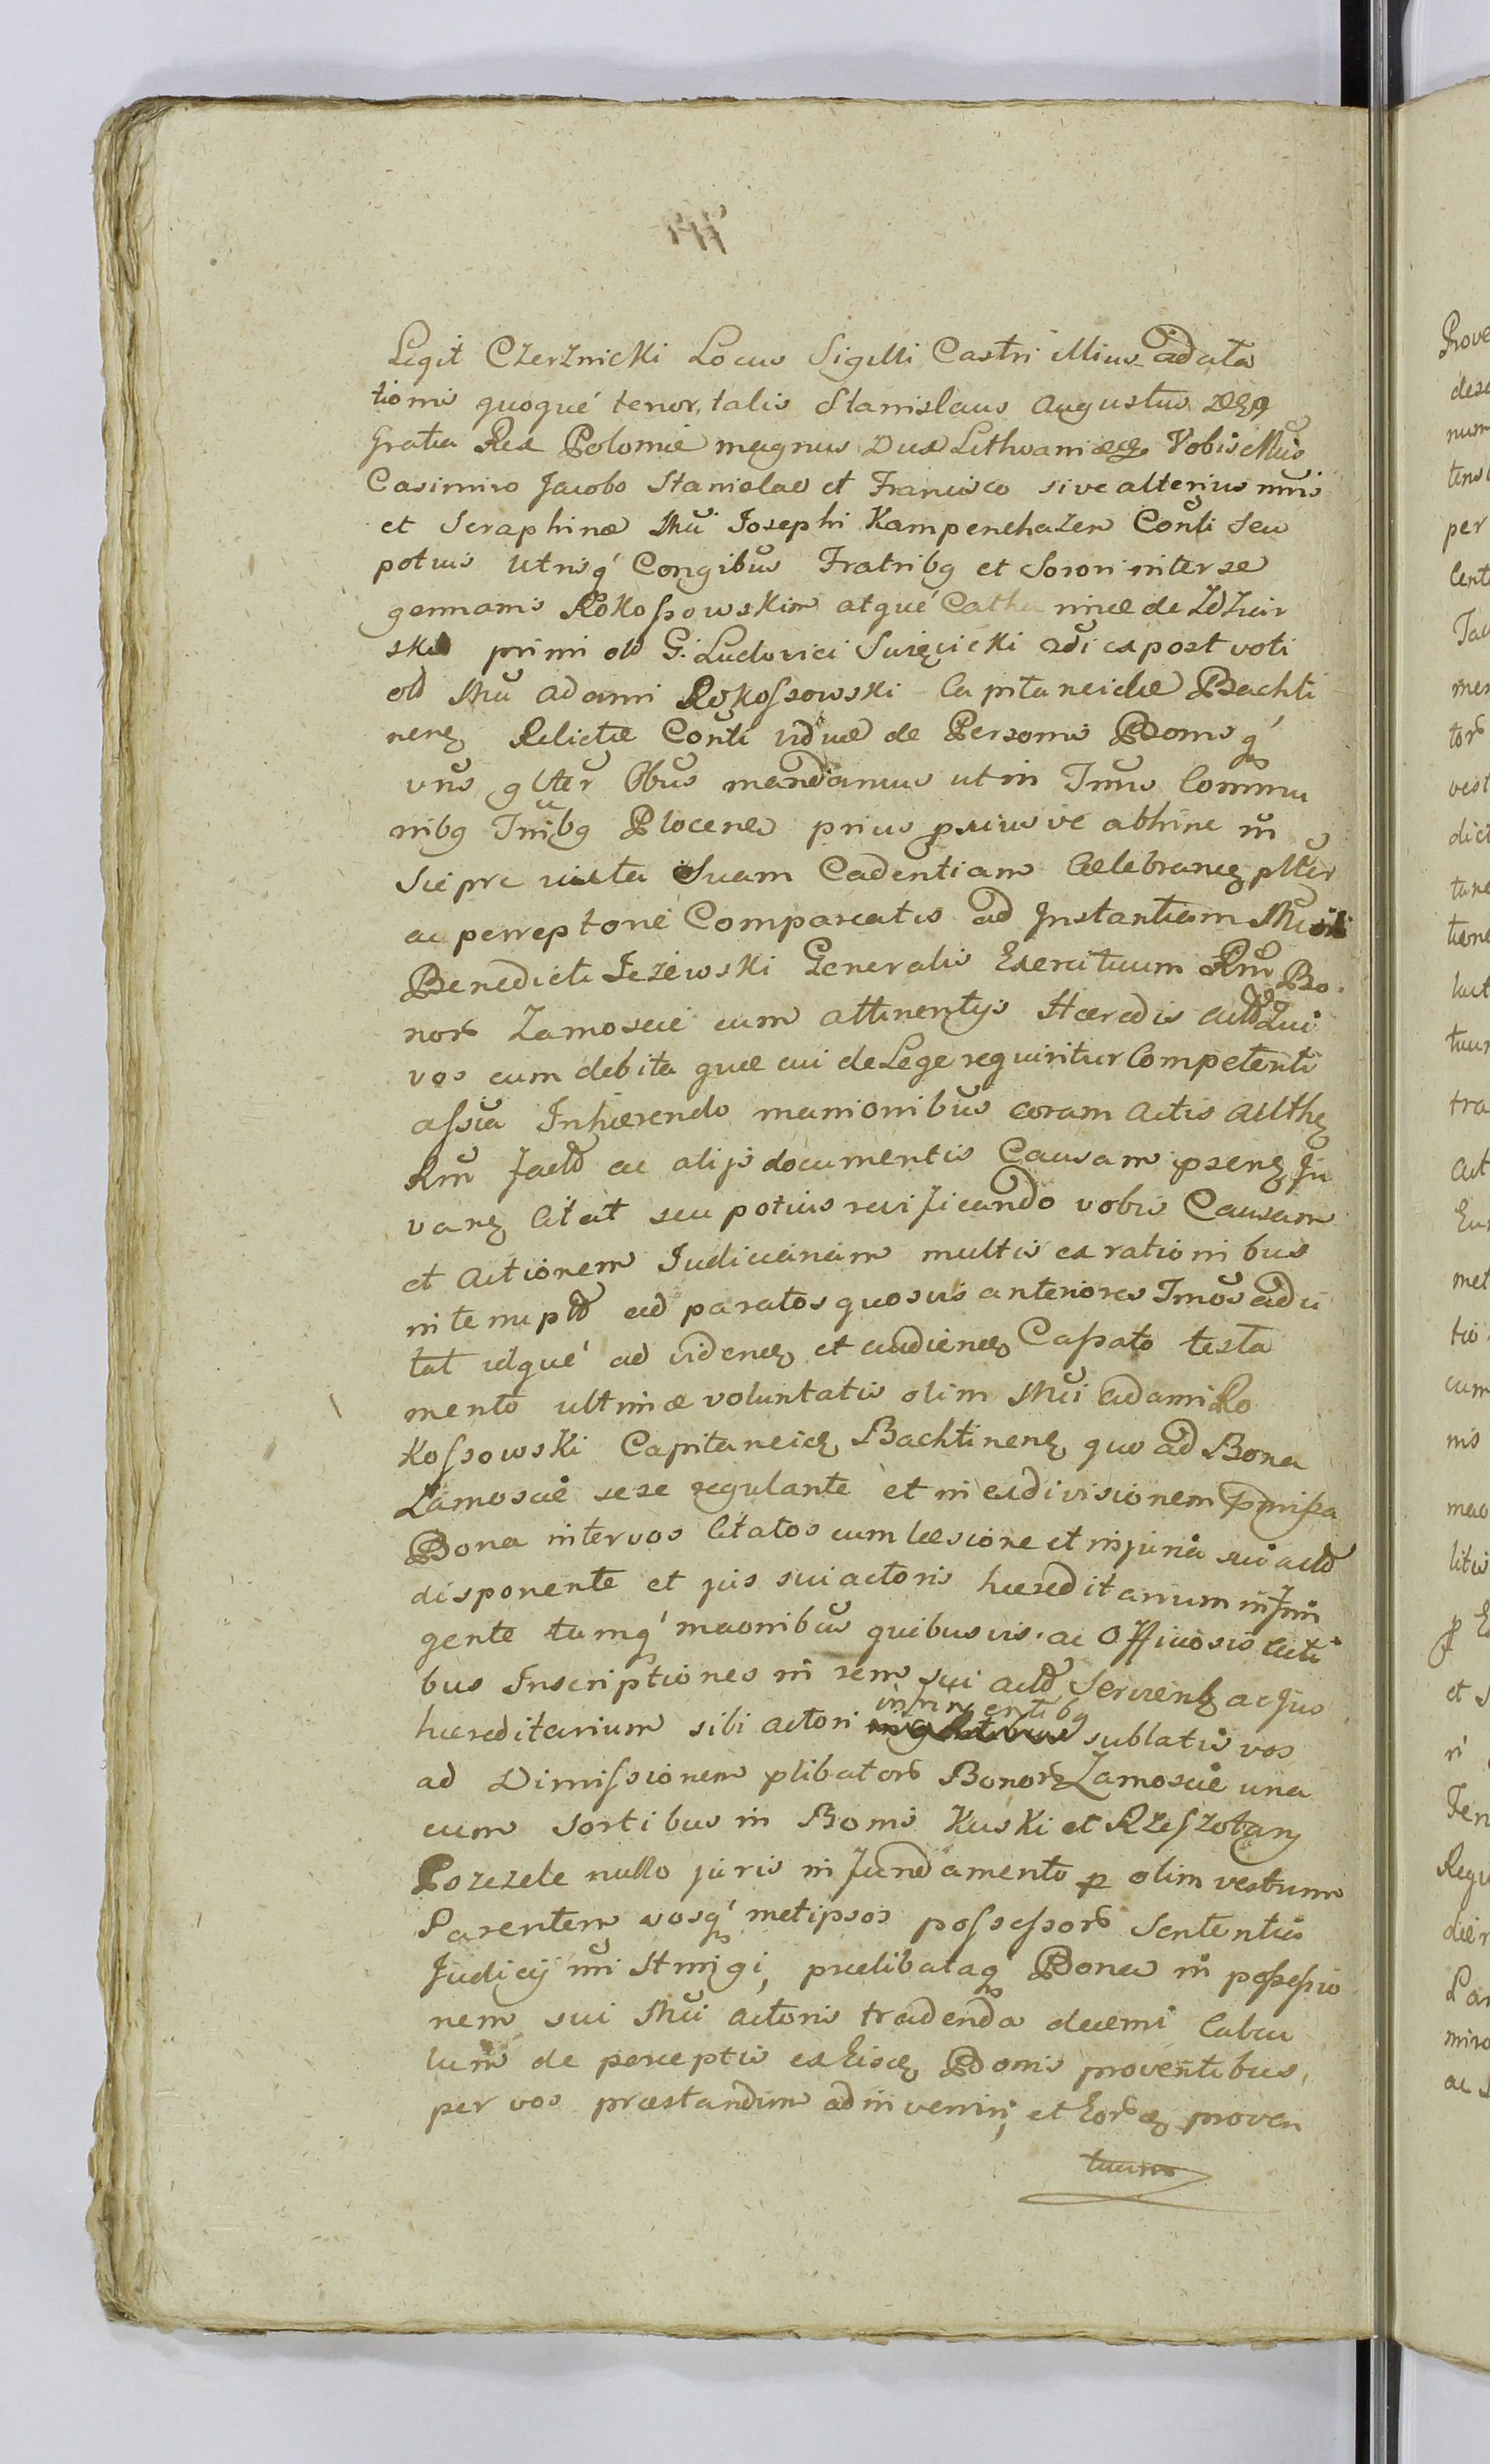 Legit Czerznicki Locus Sigilli Castri illius adcita
tionis quoque tenor talis Stanislaus Augustus Dei
gratia Rex Polonie magnus Dux Lithvaniæ Vobis Mcis
Casimiro Jacobo Stanislao et Francisco sive alterius nnis
et Seraphinæ Mci Josephi Kampenchazen Conti seu
potius utrisq Congibus Fratribq et Sorori inter se
germanis Rokossowskim atque Catha rinæ de Zdzier
skie primi old G. Ludovici Święcicki sdi ex post voti
old Mci Adami Rokossowski Capitaneidæ Bachti
nens Relictæ Conti viduæ de Personis Bonisq
vris gliter Obus mandamus ut in Tmis Commu
nibq Tnibq Plocens prius psciusve abhinc in
Sieprc iuxta Suam Cadentiam Celebrand plter
ac perreptorie Compareatis ad Instantiam Mci
Benedicti Jeżewski Generalis Exercituum Rni Bo
nor Zamoscie cum attinentijs Hæredis act Qui
vos cum debita quæ cui de Lege requiritur Competenti
assia Inhærendo manionibus coram Actis Authen
Rni fact ac alijs documentis Causam psens Ju
vans Citat seu potius revificando vobis Causam
et Actionem Judiciariam multis ex rationibus
interruptd ad paratos quosvis anteriores Tmos adci
tat idque ad videnq et audienq Cassato testa
mento ultimæ voluntatis olim Mci Adami Ro
kossowski Capitaneidę Bachtinens quo ad Bona
Zamoscie sese regulante et in eadivisionem pmissa
Bona inter vos Citatos cum læsione et injuria sui act
disponente et jus sui actoris hæreditarium infrin
gente tamq maonibus quibusvis ac Officiosis acti
bus Inscriptiones in rem sui act Serviens ac Jus
hæreditarium sibi actori infrin entibq sublatis vos
ad Dimissionem plibator Bonor Zamoscie una
cum Sortibus in Bonis Kuski et Rzeszotary
Pszczele nullo juris in fundamento p olim vestrum
Parentem vosq metipsos possessor Sententia
Judicij nri Stringi, prælibataq Bona in possessio
nem sui Mci Actoris tradenda decerni Calcu
lum de perceptis ex Eisd Bonis proventibus,
per vos præstandum adinveniri, et Eord proven
tuum